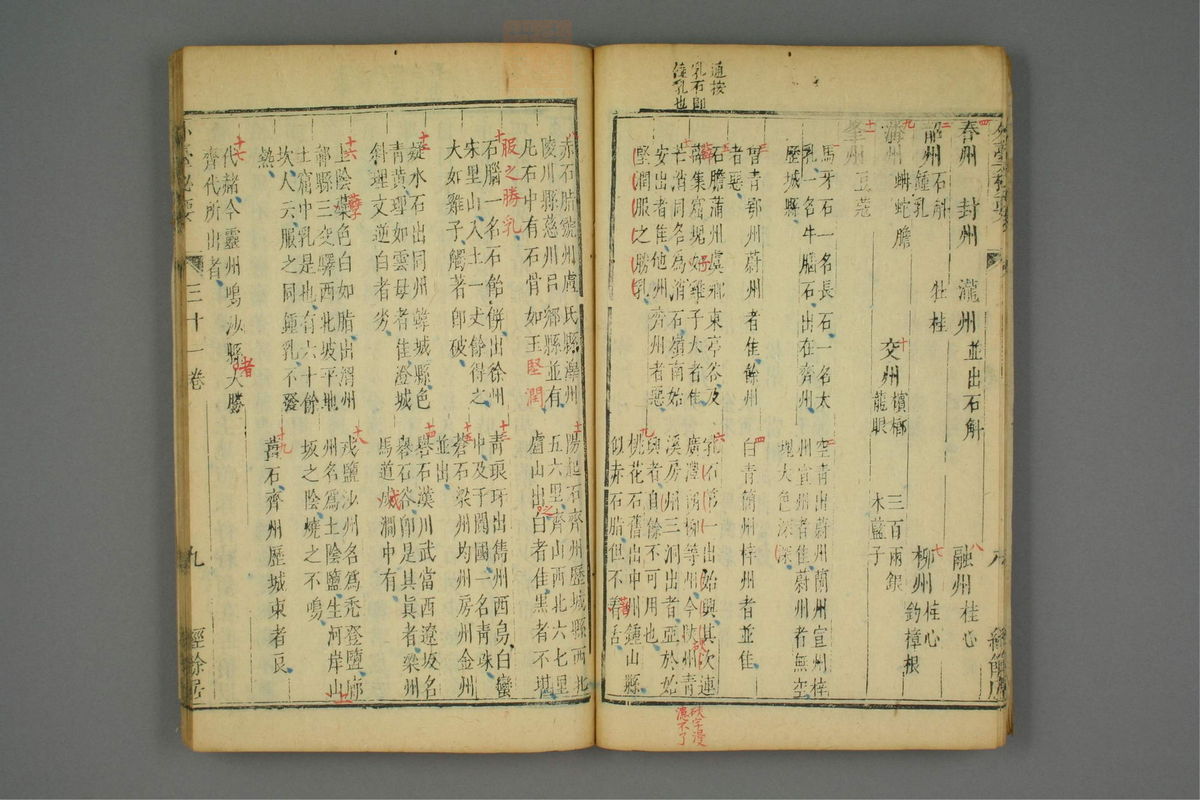 通按
乳石即
鍾乳也
春州 封州 瀧州 並出石斛 融州 桂心
韶州 石斛 鍾乳 牡桂 柳州 桂心 釣樟根
蚺蛇膽 交州 檳榔 龍眼 三百兩銀 木藍子
豆蔻
馬牙石一名長石一名太
乳一名牛腦石出在齊州
歷城縣
空青出蔚州蘭州宣州梓
州宣州者佳蔚州者無空
塊大色深
曾青鄂州蔚州者佳餘州
者惡
白青簡州梓州者並佳
石膽蒲州虞鄉東亭谷及
薛集窟塊如雞子大者佳
芒消同名為消石嶺南始
安出者佳他州齊州者惡
堅潤服之勝乳
出始興其次連
廣澧朗郴等州今陝州青
溪房州三洞出者亞於始
興者自餘不可用也
桃花石舊出申州鍾山縣
似赤石脂但不著舌
赤石脂虢州盧氏縣澤州
陵川縣慈州呂鄉縣並有
凡石中有石骨如玉堅潤
服之勝乳
石腦一名石飴餅出徐州
宋里山入土一丈餘得之
大如雞子觸著即破
凝水石出同州韓城縣色
青黃理如雲母者佳澄城
斜理文逆白者劣
土陰蘖色白如脂出渭州
鄣縣三交驛西北坡平地
土窟中乳是也有六十餘
坎人云服之同鍾乳不發
熱
代赭今靈州鳴沙縣大勝
齊代所出者
陽起石齊州歷城縣西北
五六里齊山西北六七里
盧山出白者佳黑者不堪
青琅玕出雋州西烏白蠻
中及于闐國一名青珠
蒼石梁州均州房州金州
並出
礜石漢川武當西遼坂名
礜石谷即是其真者梁州
馬道戍澗中有
戎鹽沙州名為禿登鹽廓
州名為土陰鹽生河岸山
坂之陰燒之不鳴
蒼石齊州歷城東者良
三十一卷
九
經餘居